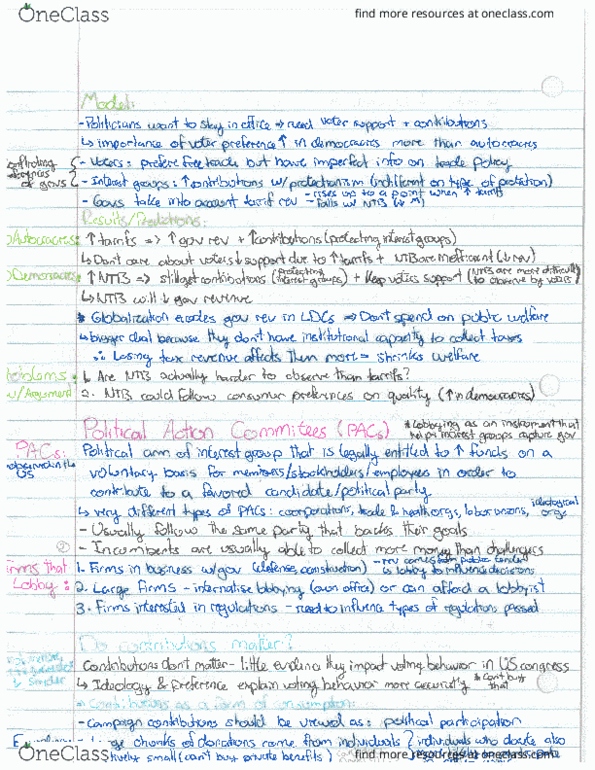 OneClass
find more resources at oneclass.com
Model:
- Politicians want to stay in office => need voter support + contributions
↳ importance of voter preference ↑ in democracies more than autocracies
- Voters: prefer free trade but have imperfect info on trade policy
of govs
- Interest groups: ↑ contributions w/ protectionism (indifferent on type of protection)
- Govs take into account tariff rev - rises up to a point when ↑ tariffs
- falls w/ NTB (↓ M)
Results/Predictions:
Autocracies: ↑ tariffs => ↑ gov rev + ↑ contributions (protecting interest groups)
↳ Don't care about voters ↓ support due to ↑ tariffs + NTB are inefficient (↓ rev)
Democracies: ↑ NTB => still get contributions (protecting interest groups) + keep voters support (NTB are more difficult to observe by voters)
↳ NTB will ↓ gov revenue
* Globalization erodes gov rev in LDCs => Don't spend on public welfare
↳ bigger deal because they don't have institutional capacity to collect taxes
∴ Losing tax revenue affects them more = shrinks welfare
Problems w/ Argument: 1. Are NTB actually harder to observe than tariffs?
2. NTB could follow consumer preferences on quality (↑ in democracies)
Political Action Commitees (PACs)
* Lobbying as an instrument that helps interest groups capture gov
PACs: Political arm of interest group that is legally entitled to ↑ funds on a
observed in the US
voluntary basis for members/stockholders/employees in order to
contribute to a favored candidate/political party
↳ very different types of PACs: coorporations, trade & health orgs, labor unions, ideological orgs
- Usually follow the same party that backs their goals
- Incumbents are usually able to collect more money than challengers
Firms that Lobby: 1. Firms in business w/ gov (defense, construction) - rev comes from public tender
↳ lobby to influence decisions
2. Large firms - internalise lobbying (own office) or can afford a lobbyist
3. Firms interested in regulations - need to influence types of regulations passed
Do contributions matter?
Contributions don't matter - little evidence they impact voting behavior in US congress
↳ Ideology & preference explain voting behavior more accurately * Can't buy that
=> Contributions as a form of consumption:
- Campaign contributions should be viewed as: political participation
chunks of donations came from individuals? individuals who donate also
small (can't buy private benefits)
OneClass
find more resources at oneclass.com